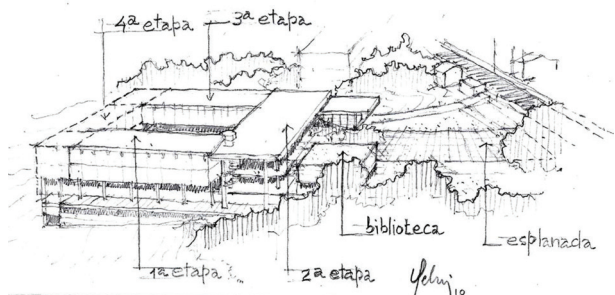 4ª etapa
3ª etapa
biblioteca
esplanada
1ª etapa
2ª etapa